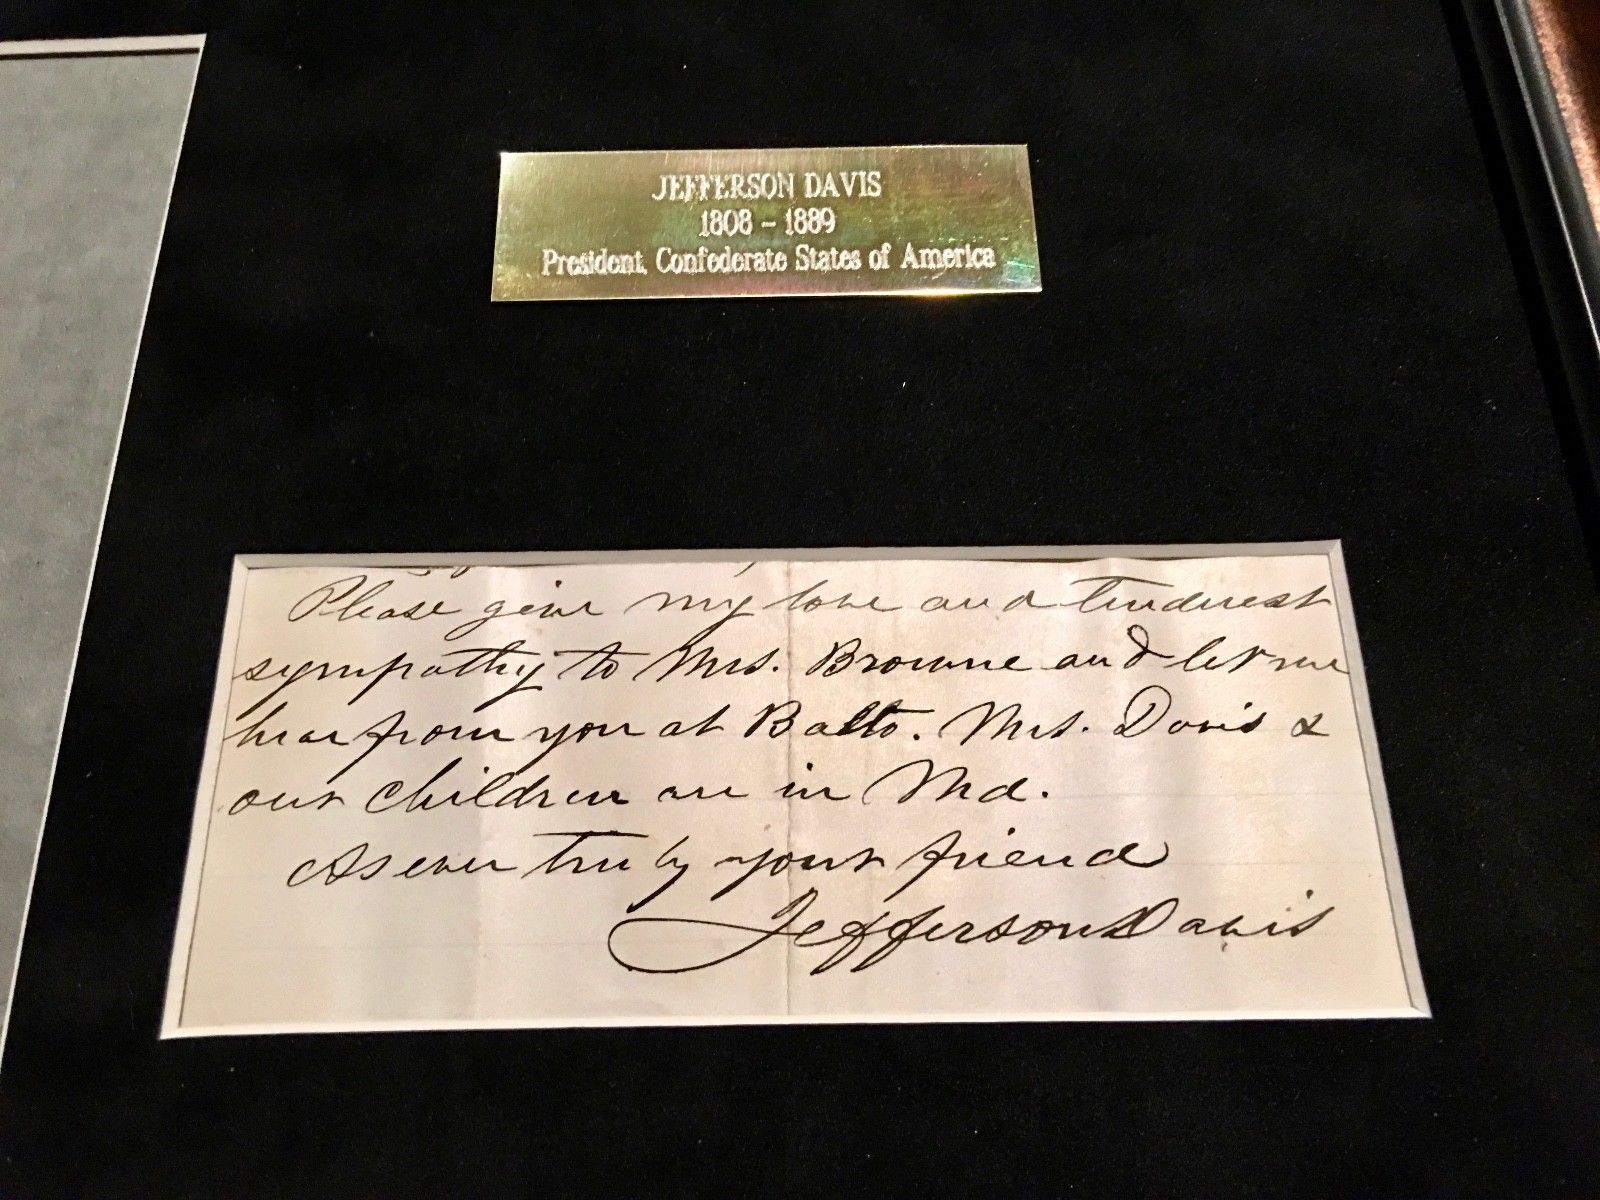 JEFFERSON DAVIS
1808 - 1889
President, Confederate States of America
Please give my love and tenderest
sympathy to Mrs. Browne and let me
hear from you at Balto. Mrs. Davis &
our children are in Md.
As ever truly your friend
Jefferson Davis